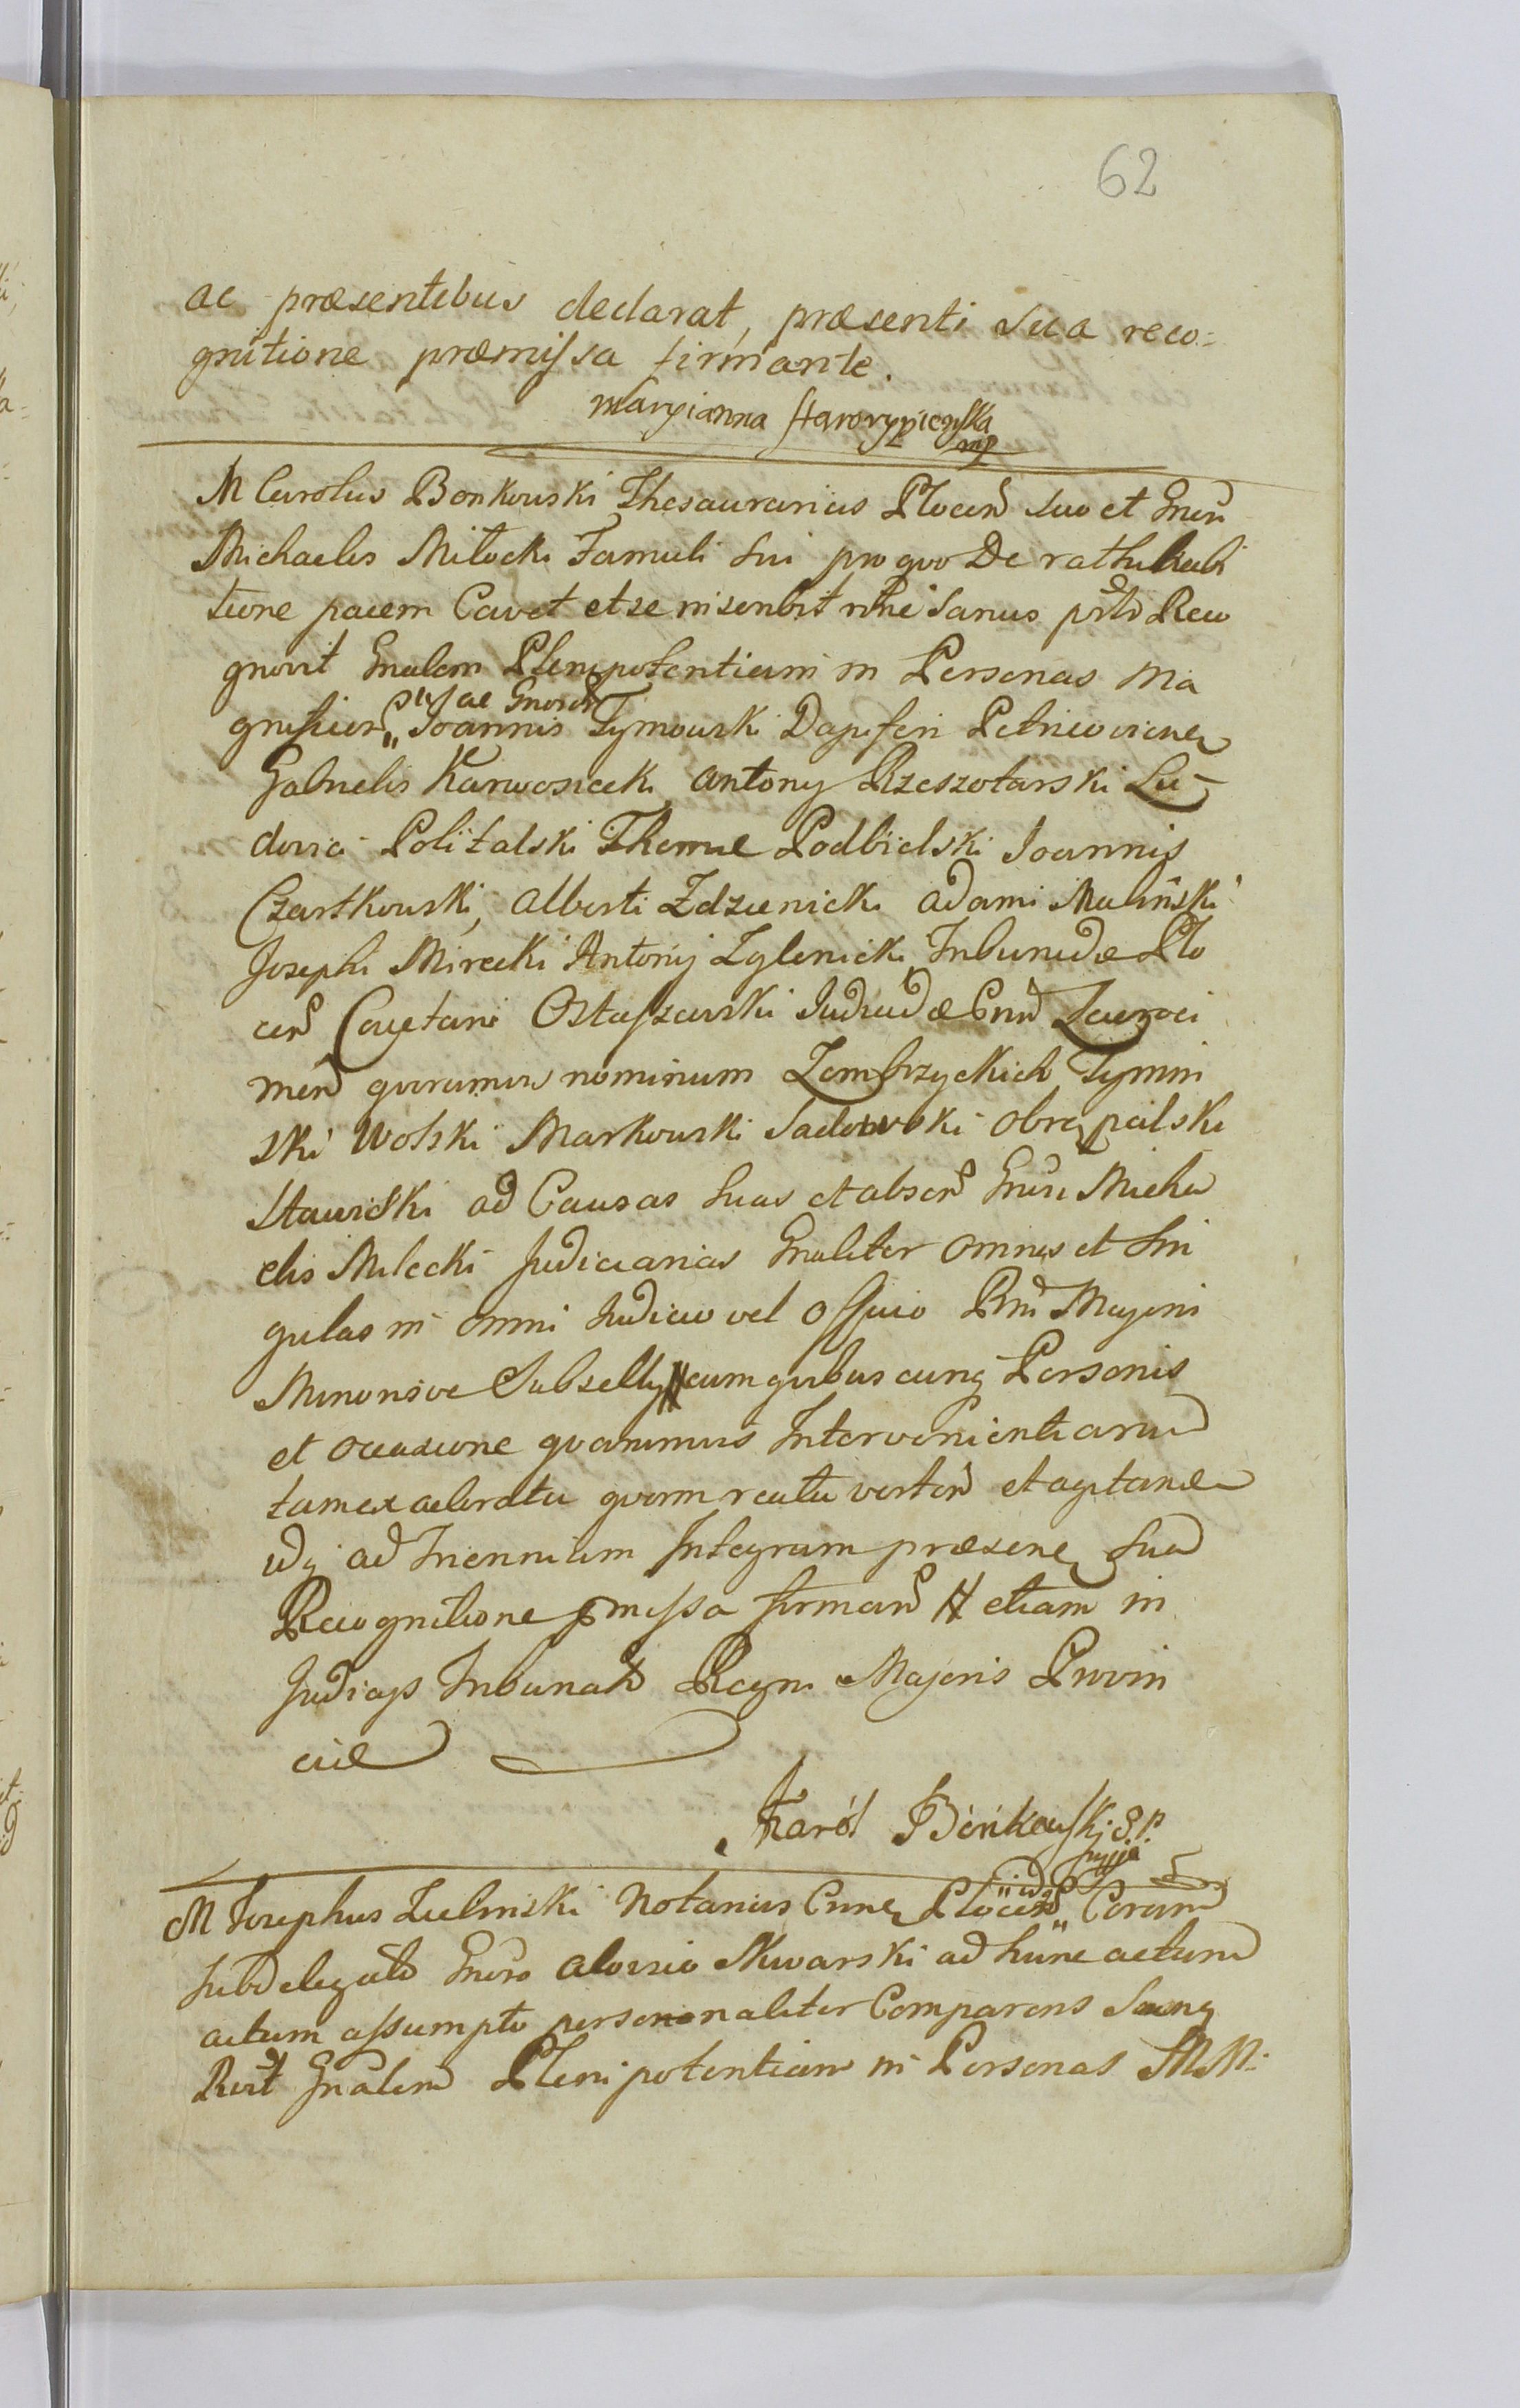 62
ac præsentibus declarat, præsenti sua reco=
gnitione præmissa firmante.
Maryianna Starorypienska
mp
M Carolus Bonkowski Thesaurarius Plocen suo et Gnrs
Michaelis Milocki Famuli sui pro quo De rathihabi
tione pacem Cavet et se inscribit nthe Sanus pslr Reco
gnovit Gnalem Plenipotentiam in Personas Ma
gnificor „ Joannis Tymowski Dapiferi Petricovicen
sius ac Gnosor
Gabrielis Karwosiecki Antony Rzeszotarski Lu-
dovici Politalski Thomæ Podbielski Joannis
Czartkowski, Alberti Zdzienicki Adami Malinski
Josephi Mirecki Antonij Zglenicki Tribunidæ Plo
cen Cayetani Ostaszewski Judicidæ Cnn Zawroci
men quorumvis nominum Zembrzyckich Tymin
ski Wolski Markowski Sadowski Obrąpalski
Stawiski ad Causas suas et absen Gnrsi Micha
elis Milocki Judiciarias Gnaliter omnes et sin
gulas in omni Judicio vel Officio Rni Majoris
Minorisve Subselly # cum quibuscunq Personis
et occasione quarumvis Intervenientiarum
tam ex actoratu quam reatu verten et agitandæ
idq ad Triennium Integrum præsene sua
Recognitione pmissa firman # etiam in
Judicijs Tribunalis Regni Majoris Provin
ciæ
Karól Bońkowski S. P.
mppia
M Josephus Zielinski Notarius Cnne Plocen „ Coram
„ idq
Subdelegato Gnro Aloisio Skwarski ad hunc actum
actum assumpto personaliter Comparens Sanq
Rcrt Gnalem Plenipotentiam in Personas MM.